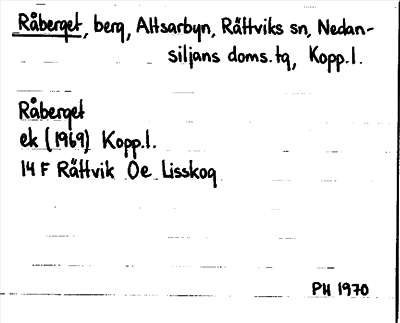 Råberget, berg, Altsarbyn, Rättviks sn, Nedan-
siljans doms. tq, Kopp.l.
Råberget
ek (1969) Kopp.l.
14 F Rättvik Oe Lisskog
PH 1970